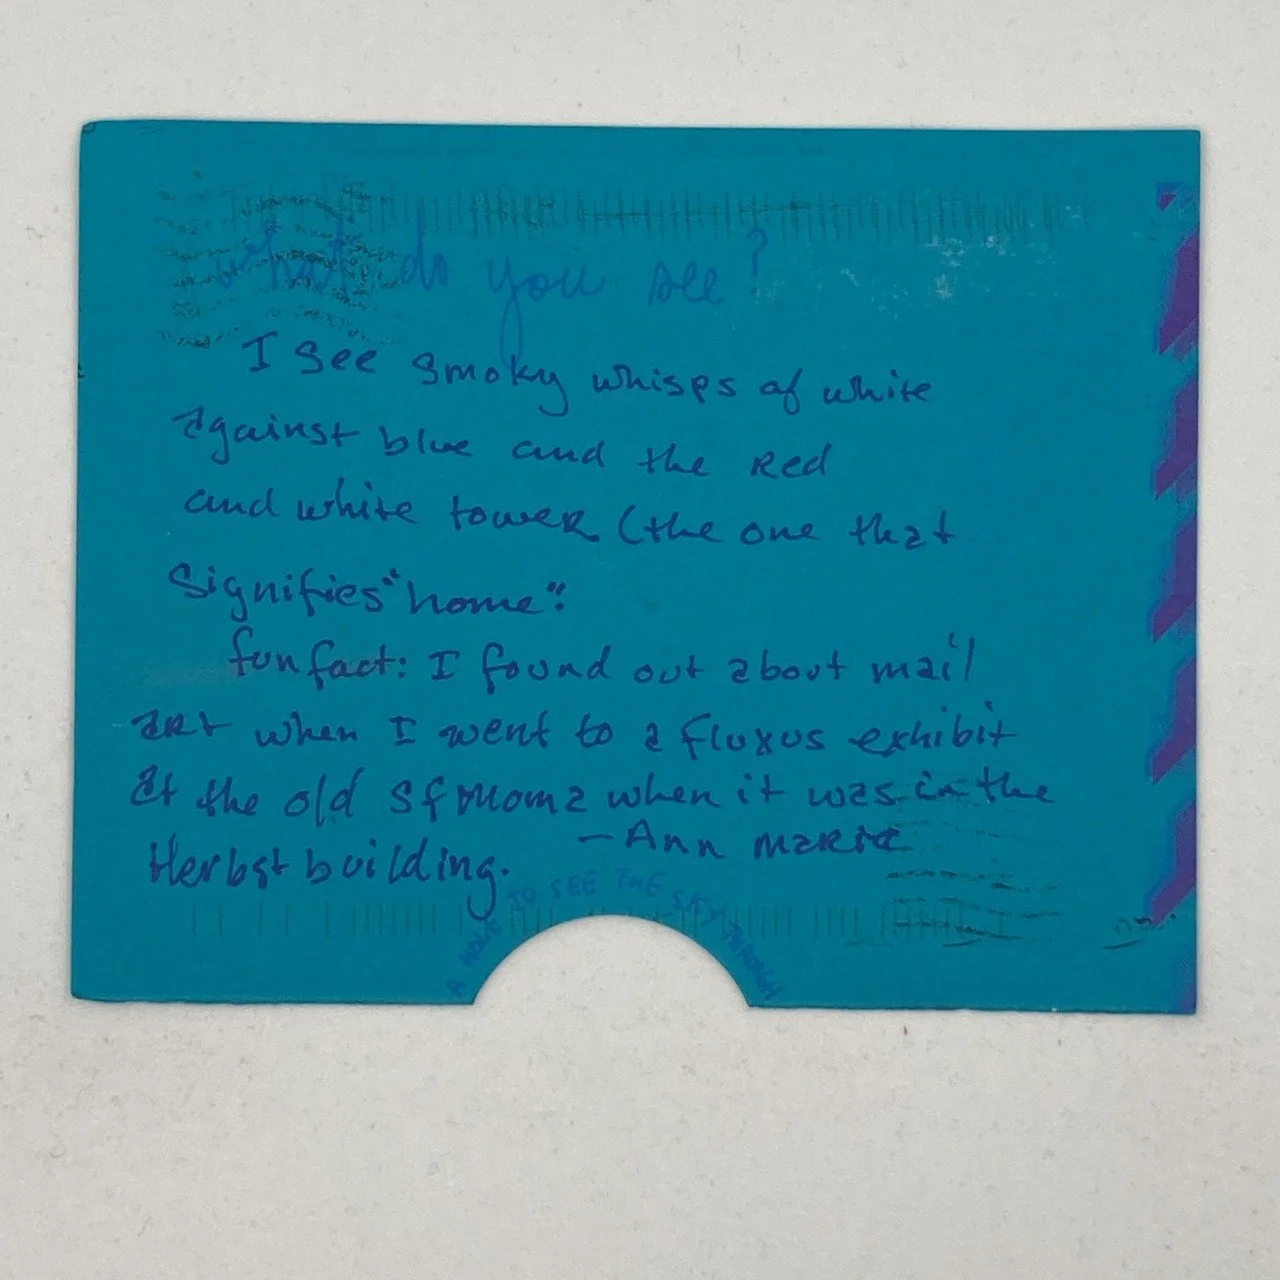 what do you see?
I see smoky whisps of white
against blue and the red
and white tower (the one that
signifies "home".
fun fact: I found out about mail
art when I went to a fluxus exhibit
at the old sfmoma when it was in the
Herbst building. – Ann Marie
A HOLE TO SEE THE SKY THROUGH